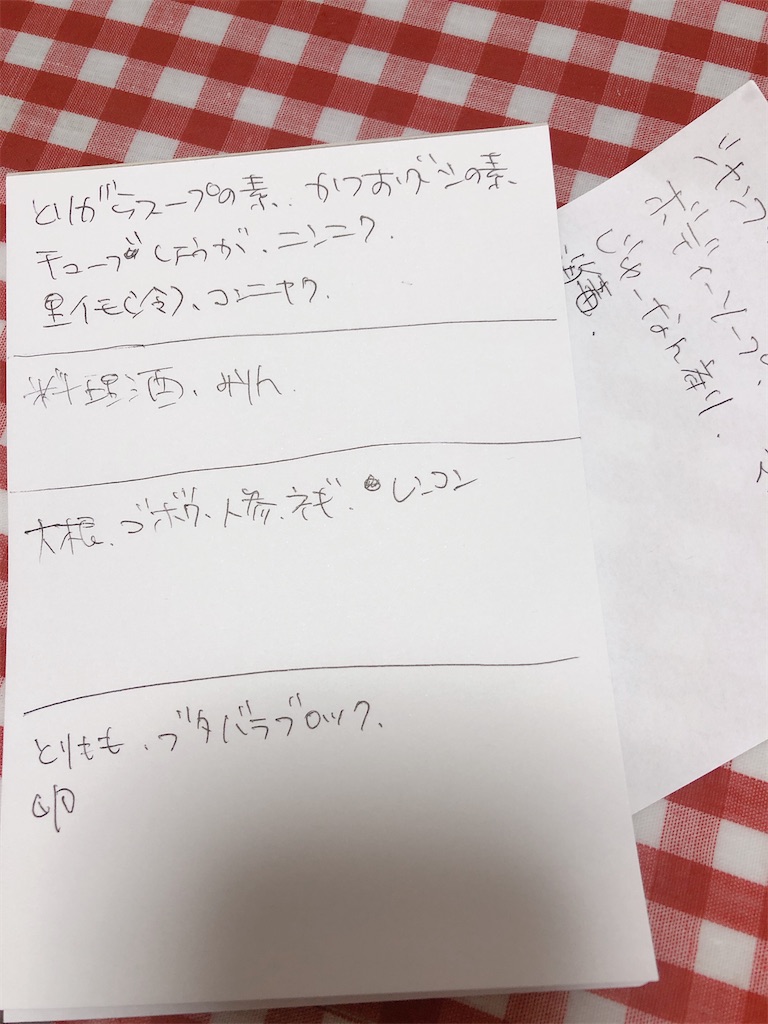 とりがらスープの素、かつおぶしの素、
チューブしょうが、ニンニク、
里イモ(冷)、コンニャク、
料理酒、みりん
大根、ゴボウ、人参、ネギ、レンコン
とりもも、ブタバラブロック、
シャンプ
ボディーソープ、
じゅーなん剤、